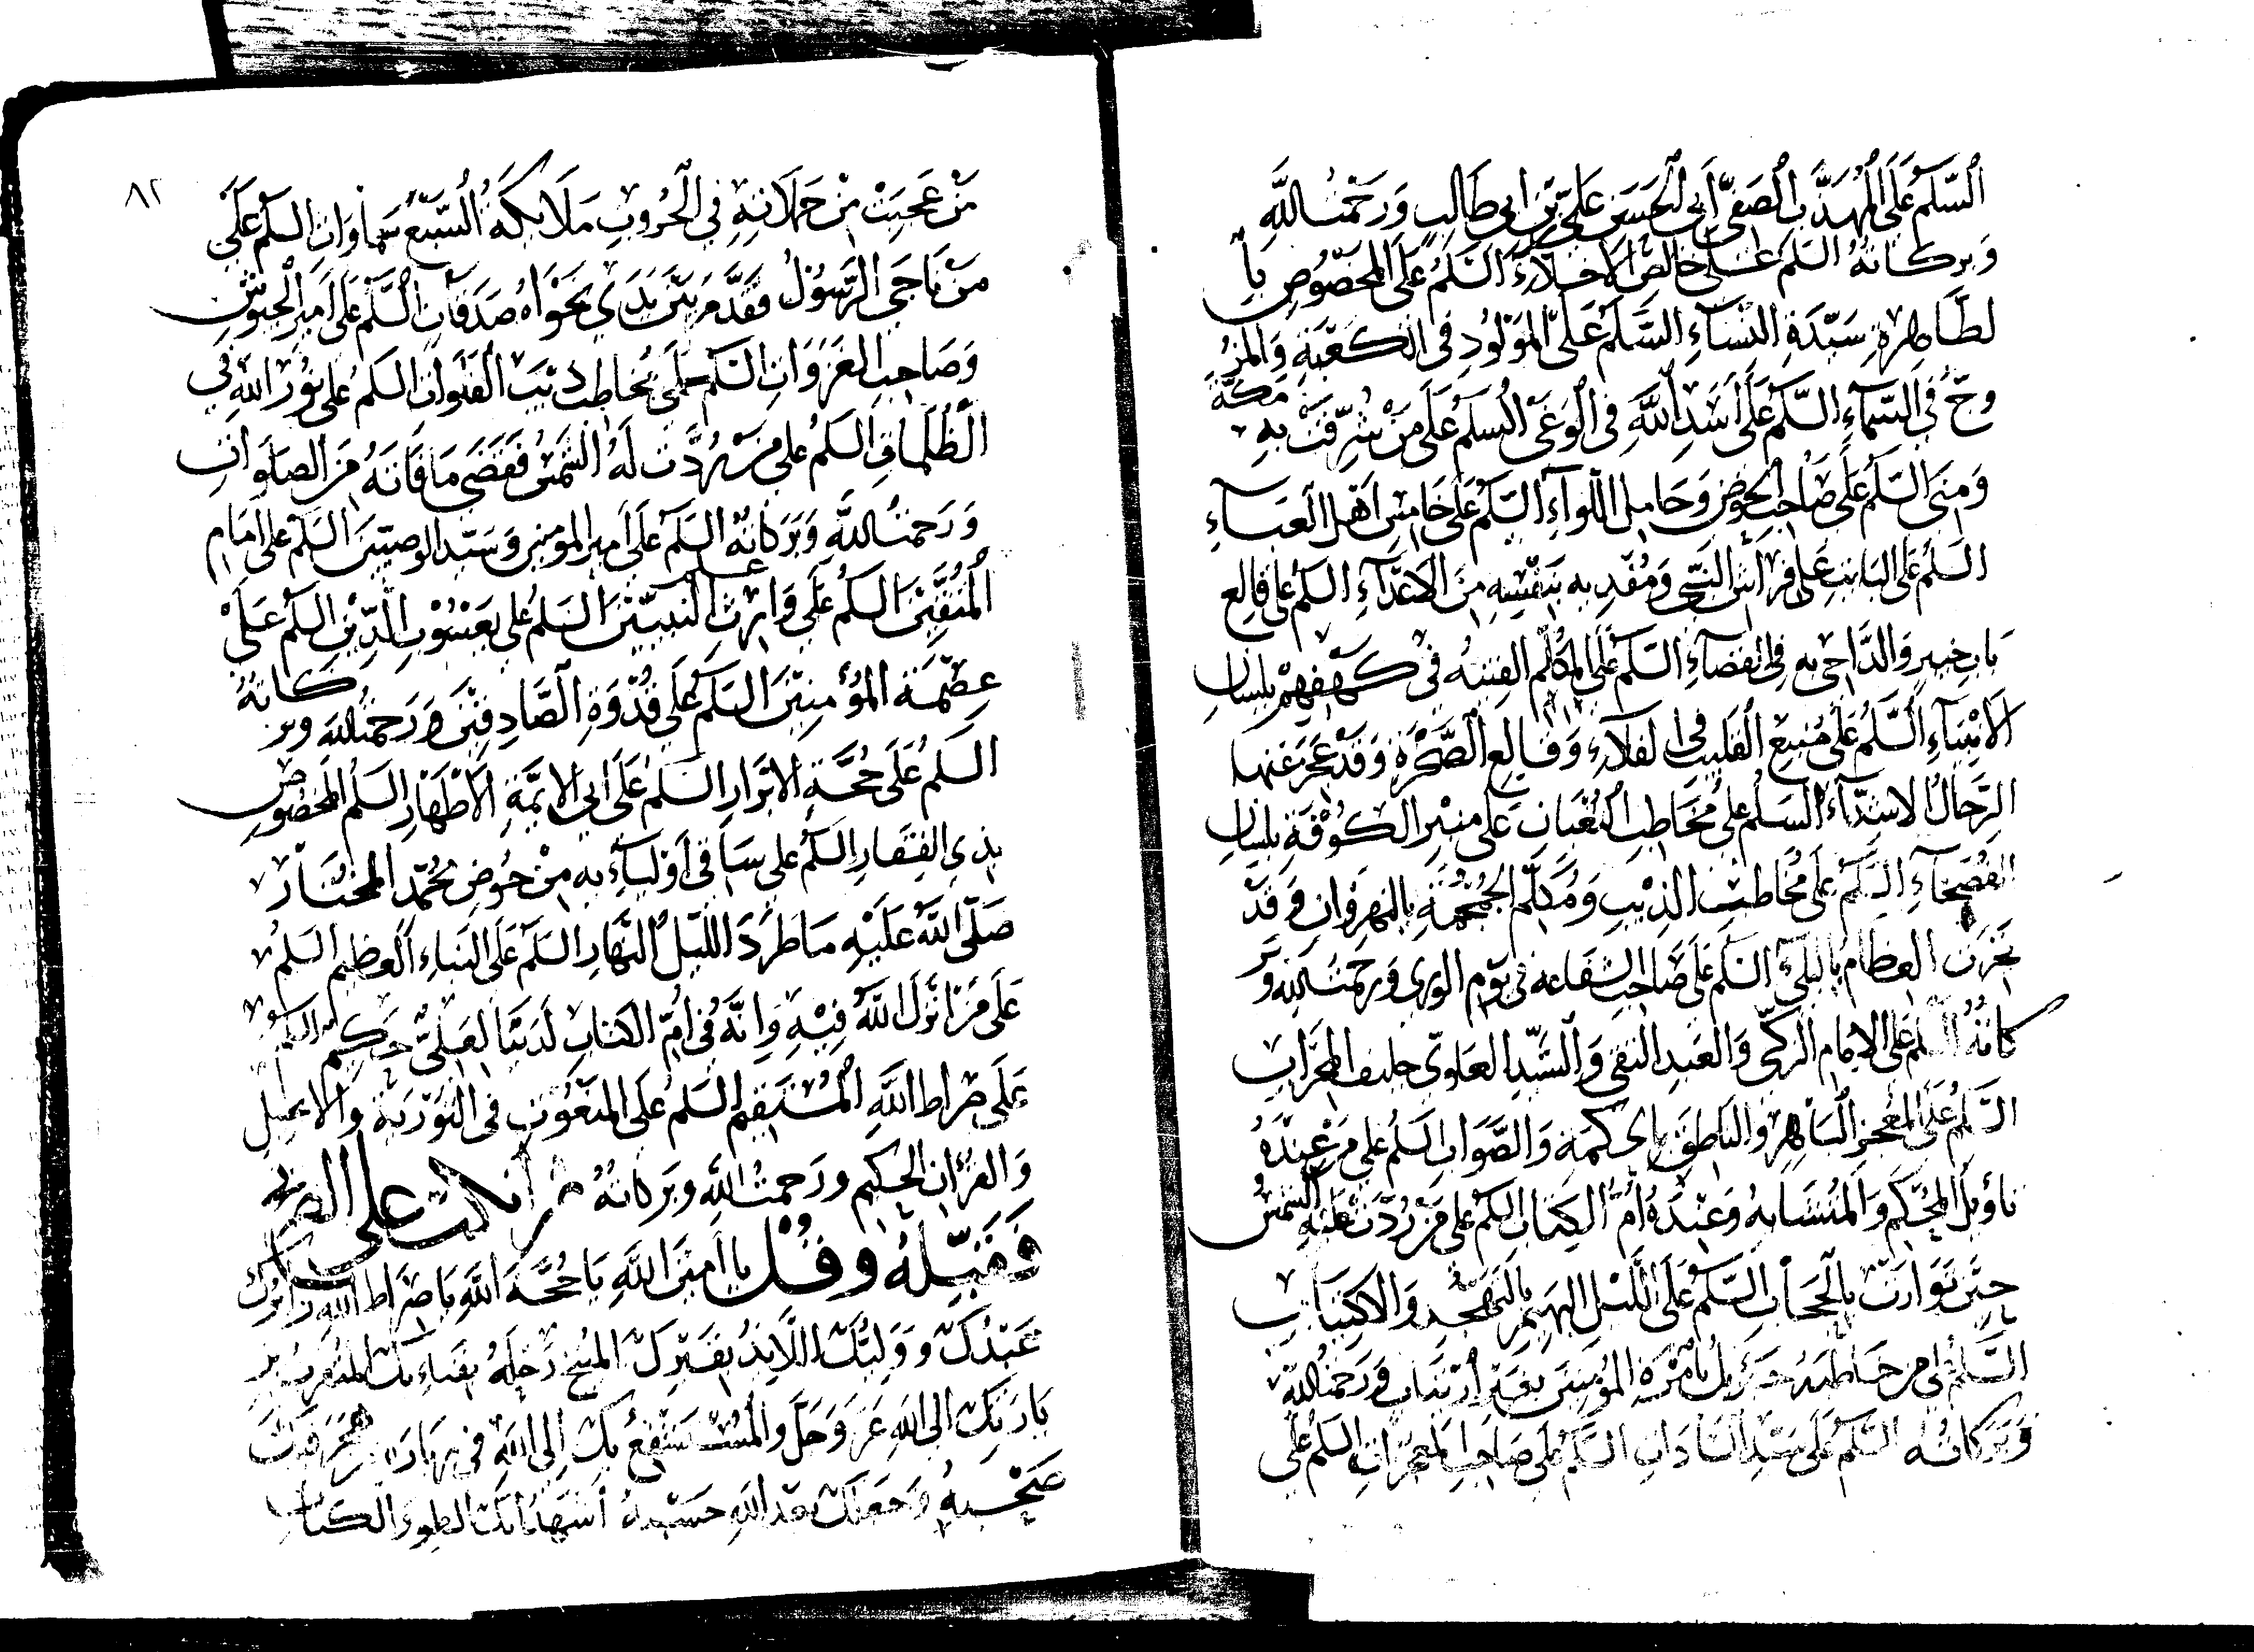 السلم على المهذب الصفى ابى الحسن على بن ابى طالب ورحمت الله
وبركاته السلم على خالص الاخلاء السلم على المخصوص با
لطاهرة سيدة النساء السلم على المولود فى الكعبة والمز
وج في السماء السلم على اسد الله فى الوغى السلم على من شرفت به مكة
ومنى السلم على صاحب الحوض وحامل اللواء السلم على خامس اهل العباء
السلم على البايت على فراش النبى ومفديه بنفسه من الاعداء السلم على قالع
باب خيبر والداحى به فى الفضاء السلم على المكلم الفتية في كهفهم بلسان
الانبياء السلم على منبع القليب فى الفلاء وقالع الصخرة وقد عجز عنها
الرجال الاشداء السلم على مخاطب الثعبان على منبر الكوفة بلسان
الفصحاء السلم على مخاطب الذيب ومكلم الجمجمة بالنهروان وقد
نخرت العظام بالبلى السلم على صاحب الشفاعة فى يوم الورى ورحمت الله وبر
كاته السلم على الامام الزكى والعبد التقى والسيد العلوى حليف المحراب
السلم على المعجز الباهر والناطق بالحكمة والصواب السلم على من عنده
تاويل المحكم والمتشابه وعنده ام الكتاب السلم على من ردت عليه الشمس
حتى توارت بالحجاب السلم على الليل البهيم بالتهجد والاكتياب
السلم على من خاطبه جبرئيل بامرة المؤمنين بغير ارتياب ورحمت الله
وبركاته السلم على سيد السادات السلم على صاحب المعجزات السلم على
من عجبت من حملاته في الحروب ملايكة السبع سماوات السلم على
من ناجى الرسول فقدم بين يدى نجواه صدقات السلم على امير الجيوش
وصاحب الغزوات السلم على مخاطب ذيب الفلوات السلم على نور الله في
الظلمات السلم على من ردت له الشمس فقضى ما فاته من الصلوات
ورحمت الله وبركاته السلم على امير المومنين وسيد الوصيين السلم على امام
المتقين السلم على وارث علم النبيين السلم على يعسوب الدين السلم على
عصمة المؤمنين السلم على قدوة الصادقين ورحمت الله وبركاته
السلم على حجة الابرار السلم على ابى الايمة الاطهار السلم المخصوص
بذى الفقار السلم على ساقى اوليائه من حوض محمد المختار
صلى الله عليه ما طرد الليل النهار السلم على النباء العظيم السلم
على من انزل الله فيه وانه فى ام الكتاب لدينا لعلى حكيم السلم
على صراط الله المستقيم السلم على المنعوت فى التورية والانجيل
والقرآن الحكيم ورحمت الله وبركاته ثم انكب على الضريح
فقبله وقل يا امين الله يا حجة الله يا صراط الله زايرك
عبدك ووليك اللايذ بقبرك المنيخ رحله بفناءك المتقرب
الى الله عز وجل والمستشفع بك الى الله فى زيارة من هجر فيك
صحبه وجعلك بعد الله حسبه اشهد انك الطور والكتاب